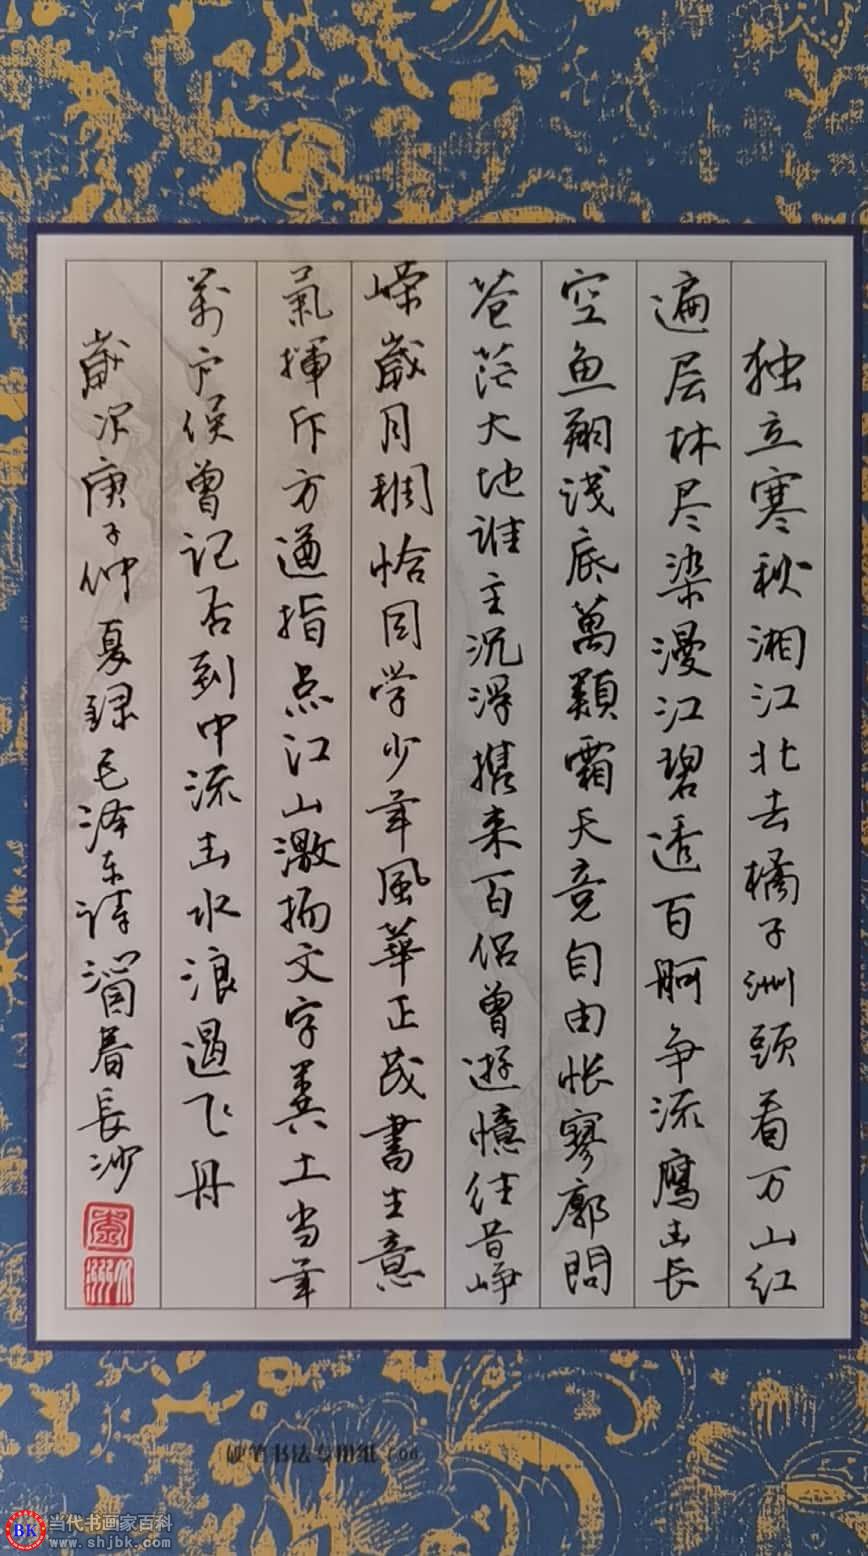 独立寒秋湘江北去橘子洲頭看万山红
遍层林尽染漫江碧透百舸争流鹰击长
空鱼翔浅底萬類霜天竞自由怅寥廓問
苍茫大地谁主沉浮携来百侣曾遊憶往昔峥
嵘歲月稠恰同学少年風華正茂書生意
氣揮斥方遒指点江山激扬文字粪土当年
萬户侯曾记否到中流击水浪遏飞舟
歲次庚子仲夏録毛泽东诗沁園春長沙
硬笔书法专用纸
BK 当代书画家百科
www.shjbk.com